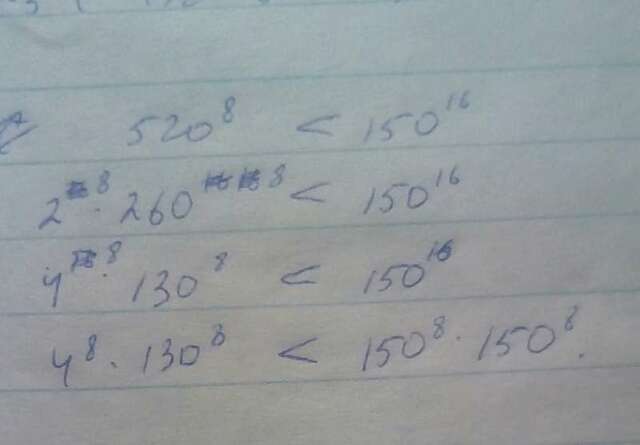 520⁸ < 150¹⁶
2⁸ · 260⁸ < 150¹⁶
4⁸ · 130⁸ < 150¹⁶
4⁸ · 130⁸ < 150⁸ · 150⁸.